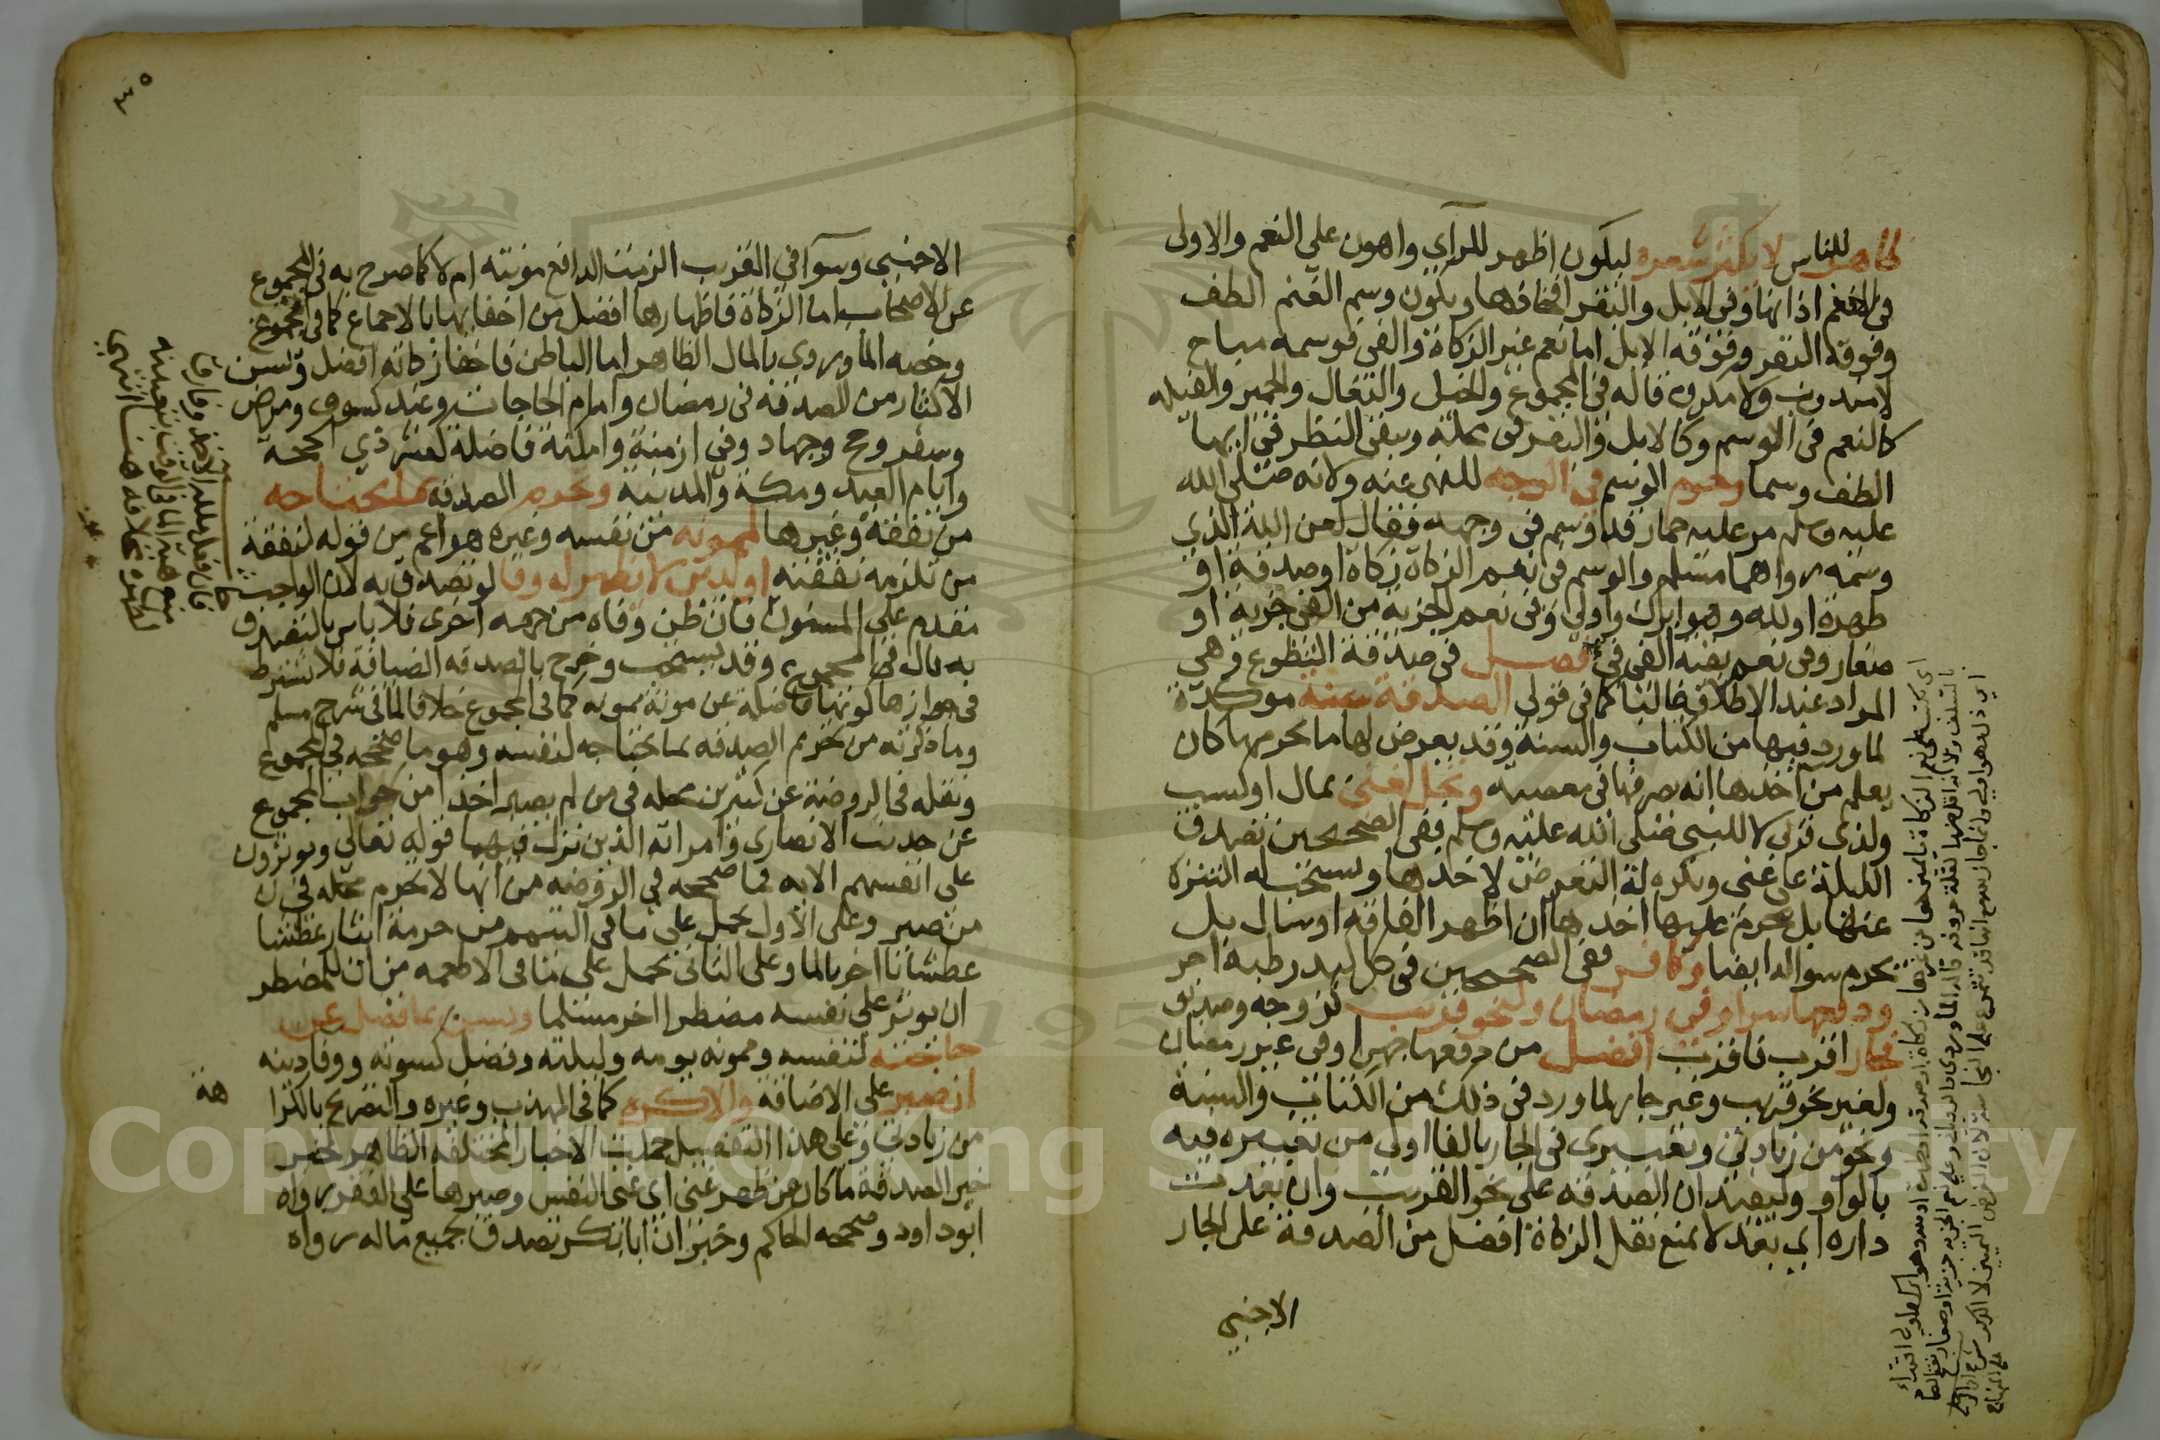 ظاهر للناس لا يكثر شعره ليكون اظهر للرآي واهون على النعم والاولى
في الغنم اذانها وفي الابل والبقر افخاذها ويكون وسم الغنم الطف
وفوقه البقر وفوقه الابل اما نعم غير الزكاة والفي فوسمه مباح
لا مندوب ولا مكروه قاله في المجموع والخيل والبغال والحمير والفيلة
كالنعم في الوسم وكالابل والبقر في محله ويبقى النظر في ايها
الطف وسما وحرم الوسم في الوجه للنهي عنه ولانه صلى الله
عليه وسلم مر عليه حمار قد وسم في وجهه فقال لعن الله الذي
وسمه رواهما مسلم والوسم في نعم الزكاة زكاة او صدقة او
طهرة او لله وهو ابرك واولى وفي نعم الجزية من الفي جزية او
صغار وفي نعم بقية الفي في فصل في صدقة التطوع وهي
المراد عند الاطلاق غالبا كما في قولي الصدقة سنة موكدة
لما ورد فيها من الكتاب والسنة وقد يعرض لها ما يحرمها كان
يعلم من آخذها انه يصرفها في معصية وتحل لغني بمال او كسب
ولذي قربى لا للنبي صلى الله عليه وسلم ففي الصحيحين تصدق
الليلة على غني ويكره له التعرض لاخذها ويستحب له التنزه
عنها بل يحرم عليه اخذها ان اظهر الفاقة او سال بل
يحرم سواله ايضا وكافر ففي الصحيحين في كل كبد رطبة اجر
ودفعها سرا وفي رمضان ولنحو قريب كزوجه وصديق
فجار اقرب فاقرب افضل من دفعها جهرا وفي غير رمضان
ولغير نحو قريب وغير جار لما ورد في ذلك من الكتاب والسنة
ونحو من زيادتي وتعبيري في الجار بالفا اولى من تعبيره فيه
بالواو وليفيد ان الصدقة على نحو القريب وان بعدت
داره اي بعدا لا يمنع نقل الزكاة افضل من الصدقة على الجار
الاجنبي
الاجنبي وسوآ في القريب الزمت الدافع مونته ام لا كما صرح به في المجموع
عن الاصحاب اما الزكاة فاظهارها افضل من اخفايها بالاجماع كما في المجموع
وخصه الماوردي بالمال الظاهر اما الباطن فاخفا زكاته افضل وتسن
الاكثار من الصدقة في رمضان وامام الحاجات وعند كسوف ومرض
وسفر وحج وجهاد وفي ازمنة وامكنة فاضلة كعشر ذي الحجة
وايام العيد ومكة والمدينة وتحرم الصدقة بما يحتاجه
من نفقة وغيرها لممونه من نفسه وغيره هو اعم من قوله لنفقة
من تلزمه نفقته او لدين لا يظهر له وفا لو تصدق به لان الواجب
مقدم على المسنون فان ظن وفاه من جهة اخرى فلا باس بالتصدق
به قال في المجموع وقد يستحب وخرج بالصدقة الضيافة فلا يشترط
في جوازها كونها فاضلة عن مونة ممونه كما في المجموع خلافا لما في شرح مسلم
وما ذكرته من تحريم الصدقة بما يحتاجه لنفسه وهو ما صححه في المجموع
ونقله في الروضة عن كثيرين محله في من لم يصبر اخذا من جواب المجموع
عن حديث الانصاري وامراته الذين نزل فيهما قوله تعالى ويوثرون
على انفسهم الاية فما صححه في الروضة من انها لا تحرم محله في
من صبر وعلى الاول يحمل على ما في التيمم من حرمة ايثار عطشا
عطشانا اخر بالما وعلى الثاني يحمل على ما في الاطعمة من ان للمضطر
ان يوثر على نفسه مضطرا اخر مسلما وتسن بما فضل عن
حاجته لنفسه وممونه يومه وليلته وفصل كسوته ووفا دينه
ان صبر على الاضاقة والا كره كما في المهذب وغيره والتصريح بالكرا
هة
من زيادتي وعلى هذا التفصيل حملت الاخبار المختلفة الظاهر كخبر
خير الصدقة ما كان عن ظهر غنى اي غنى النفس وصبرها على الفقر رواه
ابو داود وصححه الحاكم وخبر ان ابا بكر تصدق بجميع ماله رواه
Copyright © King Saud University